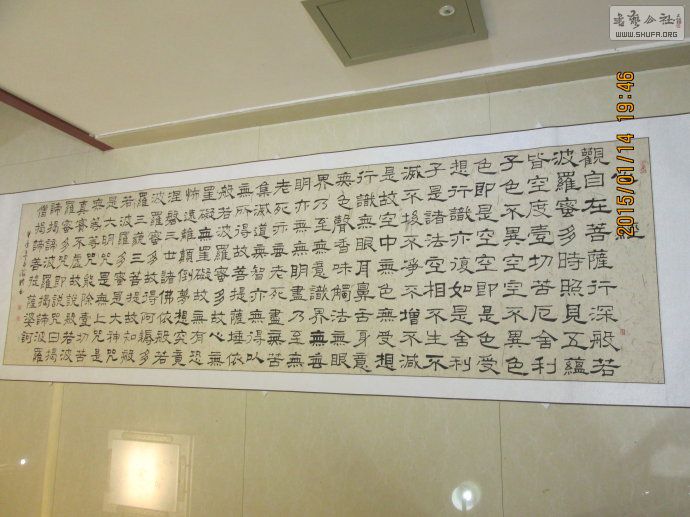 心經
觀自在菩薩行深般若
波羅蜜多時照見五蘊
皆空度壹切苦厄舍利
子色不異空空不異色
色即是空空即是色受
想行識亦復如是舍利
子是諸法空相不生不
滅不垢不淨不增不減
是故空中無色無受想
行識無眼耳鼻舌身意
無色聲香味觸法無眼
界乃至無意識界無無
明亦無無明盡乃至無
老死亦無老死盡無苦
集滅道無智亦無得以
無所得故菩提薩埵依
般若波羅蜜多故心無
罣礙無罣礙故無有恐
怖遠離顛倒夢想究竟
涅槃三世諸佛依般若
波羅蜜多故得阿耨多
羅三藐三菩提故知般
若波羅蜜多是大神咒
是大明咒是無上咒是
無等等咒能除壹切苦
真實不虛故說般若波
羅蜜多咒即說咒曰揭
諦揭諦波羅揭諦波羅
僧揭諦菩提薩婆訶
2015/01/14 19:46
書藝公社
WWW.SHUFA.ORG